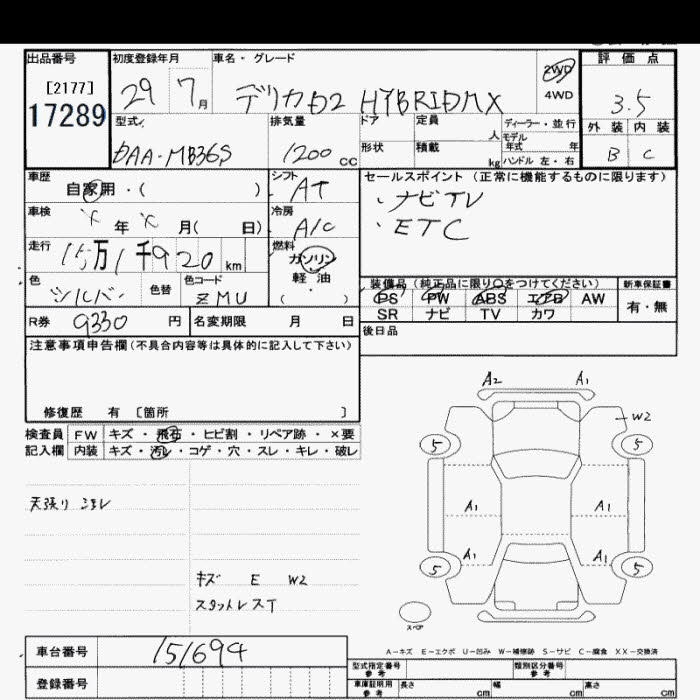 出品番号 初度登録年月 車名・グレード 2WD 評価点
[2177] 29 7月 デリカD2 HYBRIDMX 4WD 3.5
17289
型式 排気量 ドア 定員 人 ディーラー・並行 外装 内装
DAA-MB36S 1200 cc 形状 積載 kg モデル年式 年 B C
ハンドル 左・右
車歴 シフト セールスポイント (正常に機能するものに限ります)
自家用・( ) AT ・ナビTV
車検 年 月( 日) 冷房 A/C ・ETC
走行 15万1千920km 燃料 ガソリン・軽油
( )
色 シルバー 色替 色コード ZMU
装備品 (純正品に限り○をつけてください) 新車保証書
PS PW ABS エアB AW 有・無
SR ナビ TV カワ
R券 9330 円 名変期限 月 日 後日品
注意事項申告欄(不具合内容等は具体的に記入して下さい)
修復歴 有 [箇所 ]
検査員 FW キズ・飛石・ヒビ割・リペア跡・×要
記入欄 内装 キズ・汚レ・コゲ・穴・スレ・キレ・破レ
A2 A1
W2
5 5
天張り ヨゴレ
A1 A1
A1 A1
5 5
キズ E W2
スタットレスT
スペア
A-キズ E-エクボ U-凹み W-補修跡 S-サビ C-腐食 XX-交換済
車台番号 151694
登録番号
型式指定番号 参考 類別区分番号 参考
車庫証明用 参考 長さ cm 幅 cm 高さ cm